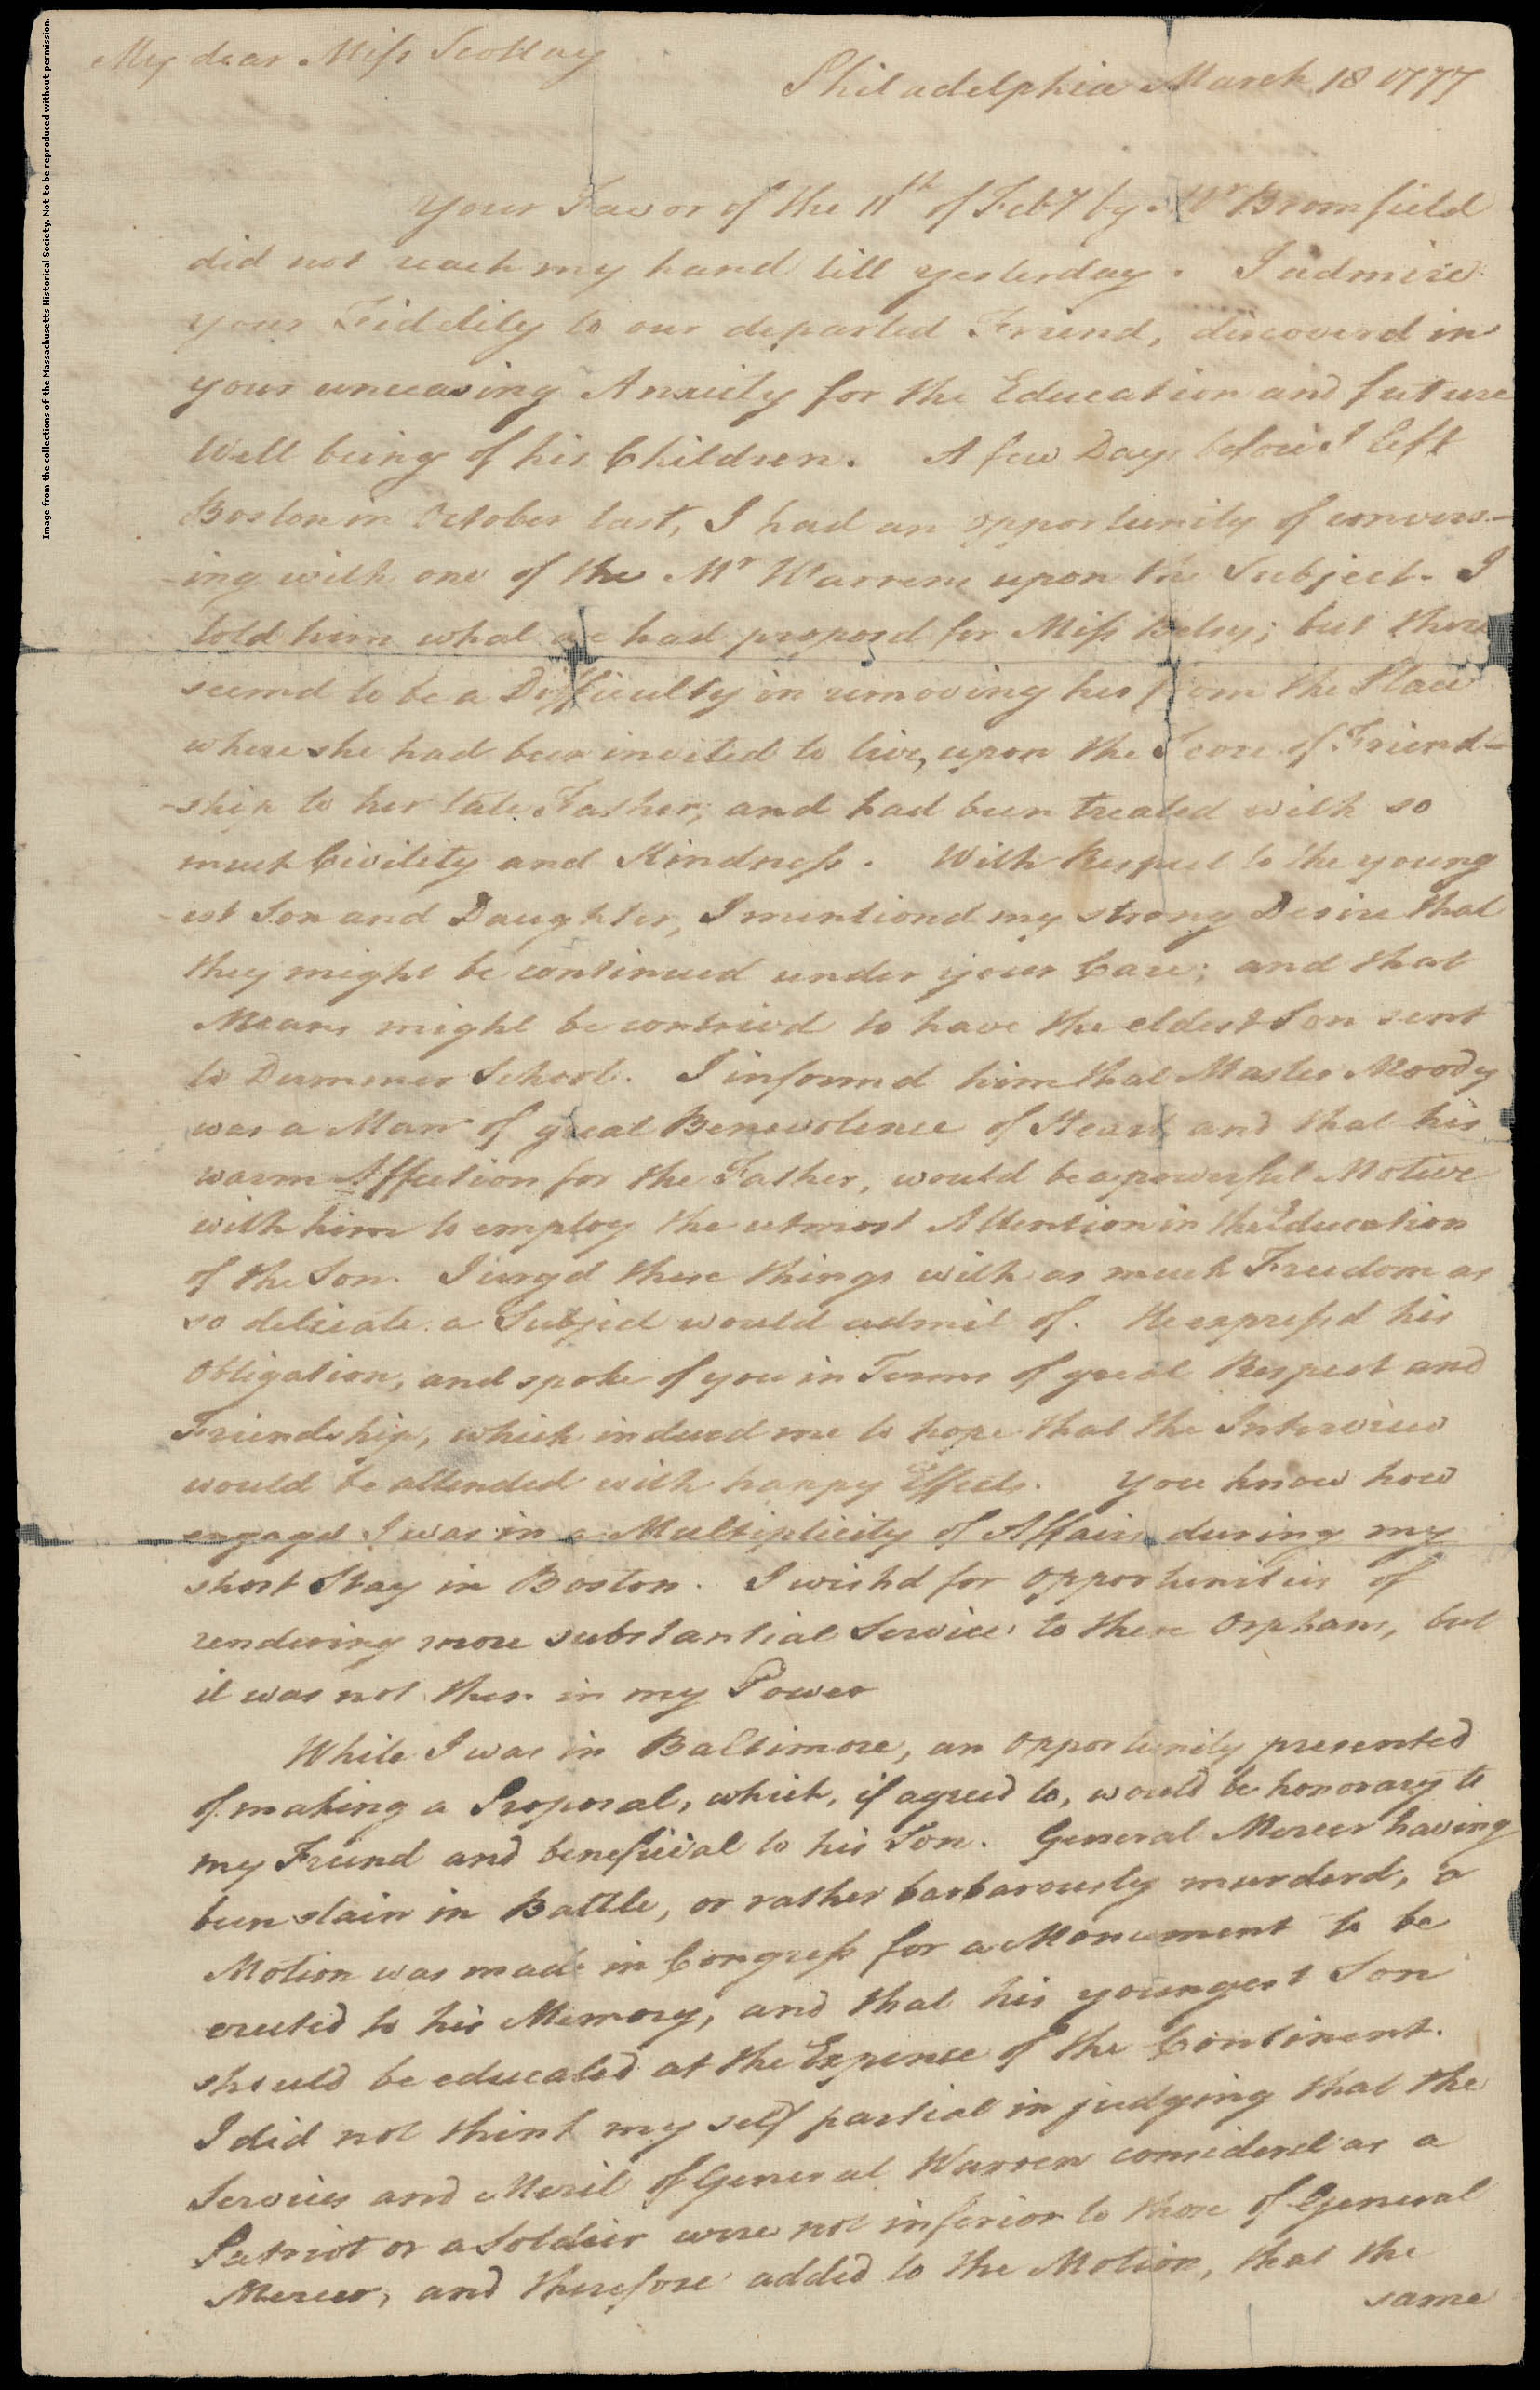 Image from the collections of the Massachusetts Historical Society. Not to be reproduced without permission.
My dear Miss Scollay
Philadelphia March 18 1777
Your Favor of the 11th of Feby by Mr Bromfield
did not reach my hand till yesterday. I admire
your Fidelity to our departed Friend, discoverd in
your unceasing Anxiety for the Education and future
Well being of his Children. A few Days before I left
Boston in October last, I had an opportunity of convers-
-ing with one of the Mr Warrens upon the Subject. I
told him what we had proposd for Miss Betsy; but there
seemd to be a Difficulty in removing her from the Place
where she had been invited to live, upon the Score of Friend-
-ship to her late Father; and had been treated with so
much Civility and Kindness. With Respect to the young
-est Son and Daughter, I mentiond my strong Desire that
they might be continued under your Care; and that
Means might be contrivd to have the eldest Son sent
to Dummer School. I informd him that Master Moody
was a Man of great Benevolence of Heart and that his
warm Affection for the Father, would be a powerful Motive
with him to employ the utmost Attention in the Education
of the Son. I urgd these things with as much Freedom as
so delicate a Subject would admit of. He expressd his
Obligation, and spoke of you in Terms of great Respect and
Friendship, which inducd me to hope that the Interview
would be attended with happy Effects. You know how
engagd I was in a Multiplicity of Affairs during my
short Stay in Boston. I wishd for opportunities of
rendering more substantial Services to these Orphans, but
it was not then in my Power
While I was in Baltimore, an opportunity presented
of making a Proposal, which, if agreed to, would be honorary to
my Friend and beneficial to his Son. General Mercer having
been slain in Battle, or rather barbarously murderd, a
Motion was made in Congress for a Monument to be
erected to his Memory, and that his youngest Son
should be educated at the Expence of the Continent.
I did not think my self partial in judging that the
Services and Merit of General Warren considerd as a
Patriot or a Soldier were not inferior to those of General
Mercer, and therefore added to the Motion, that the
same